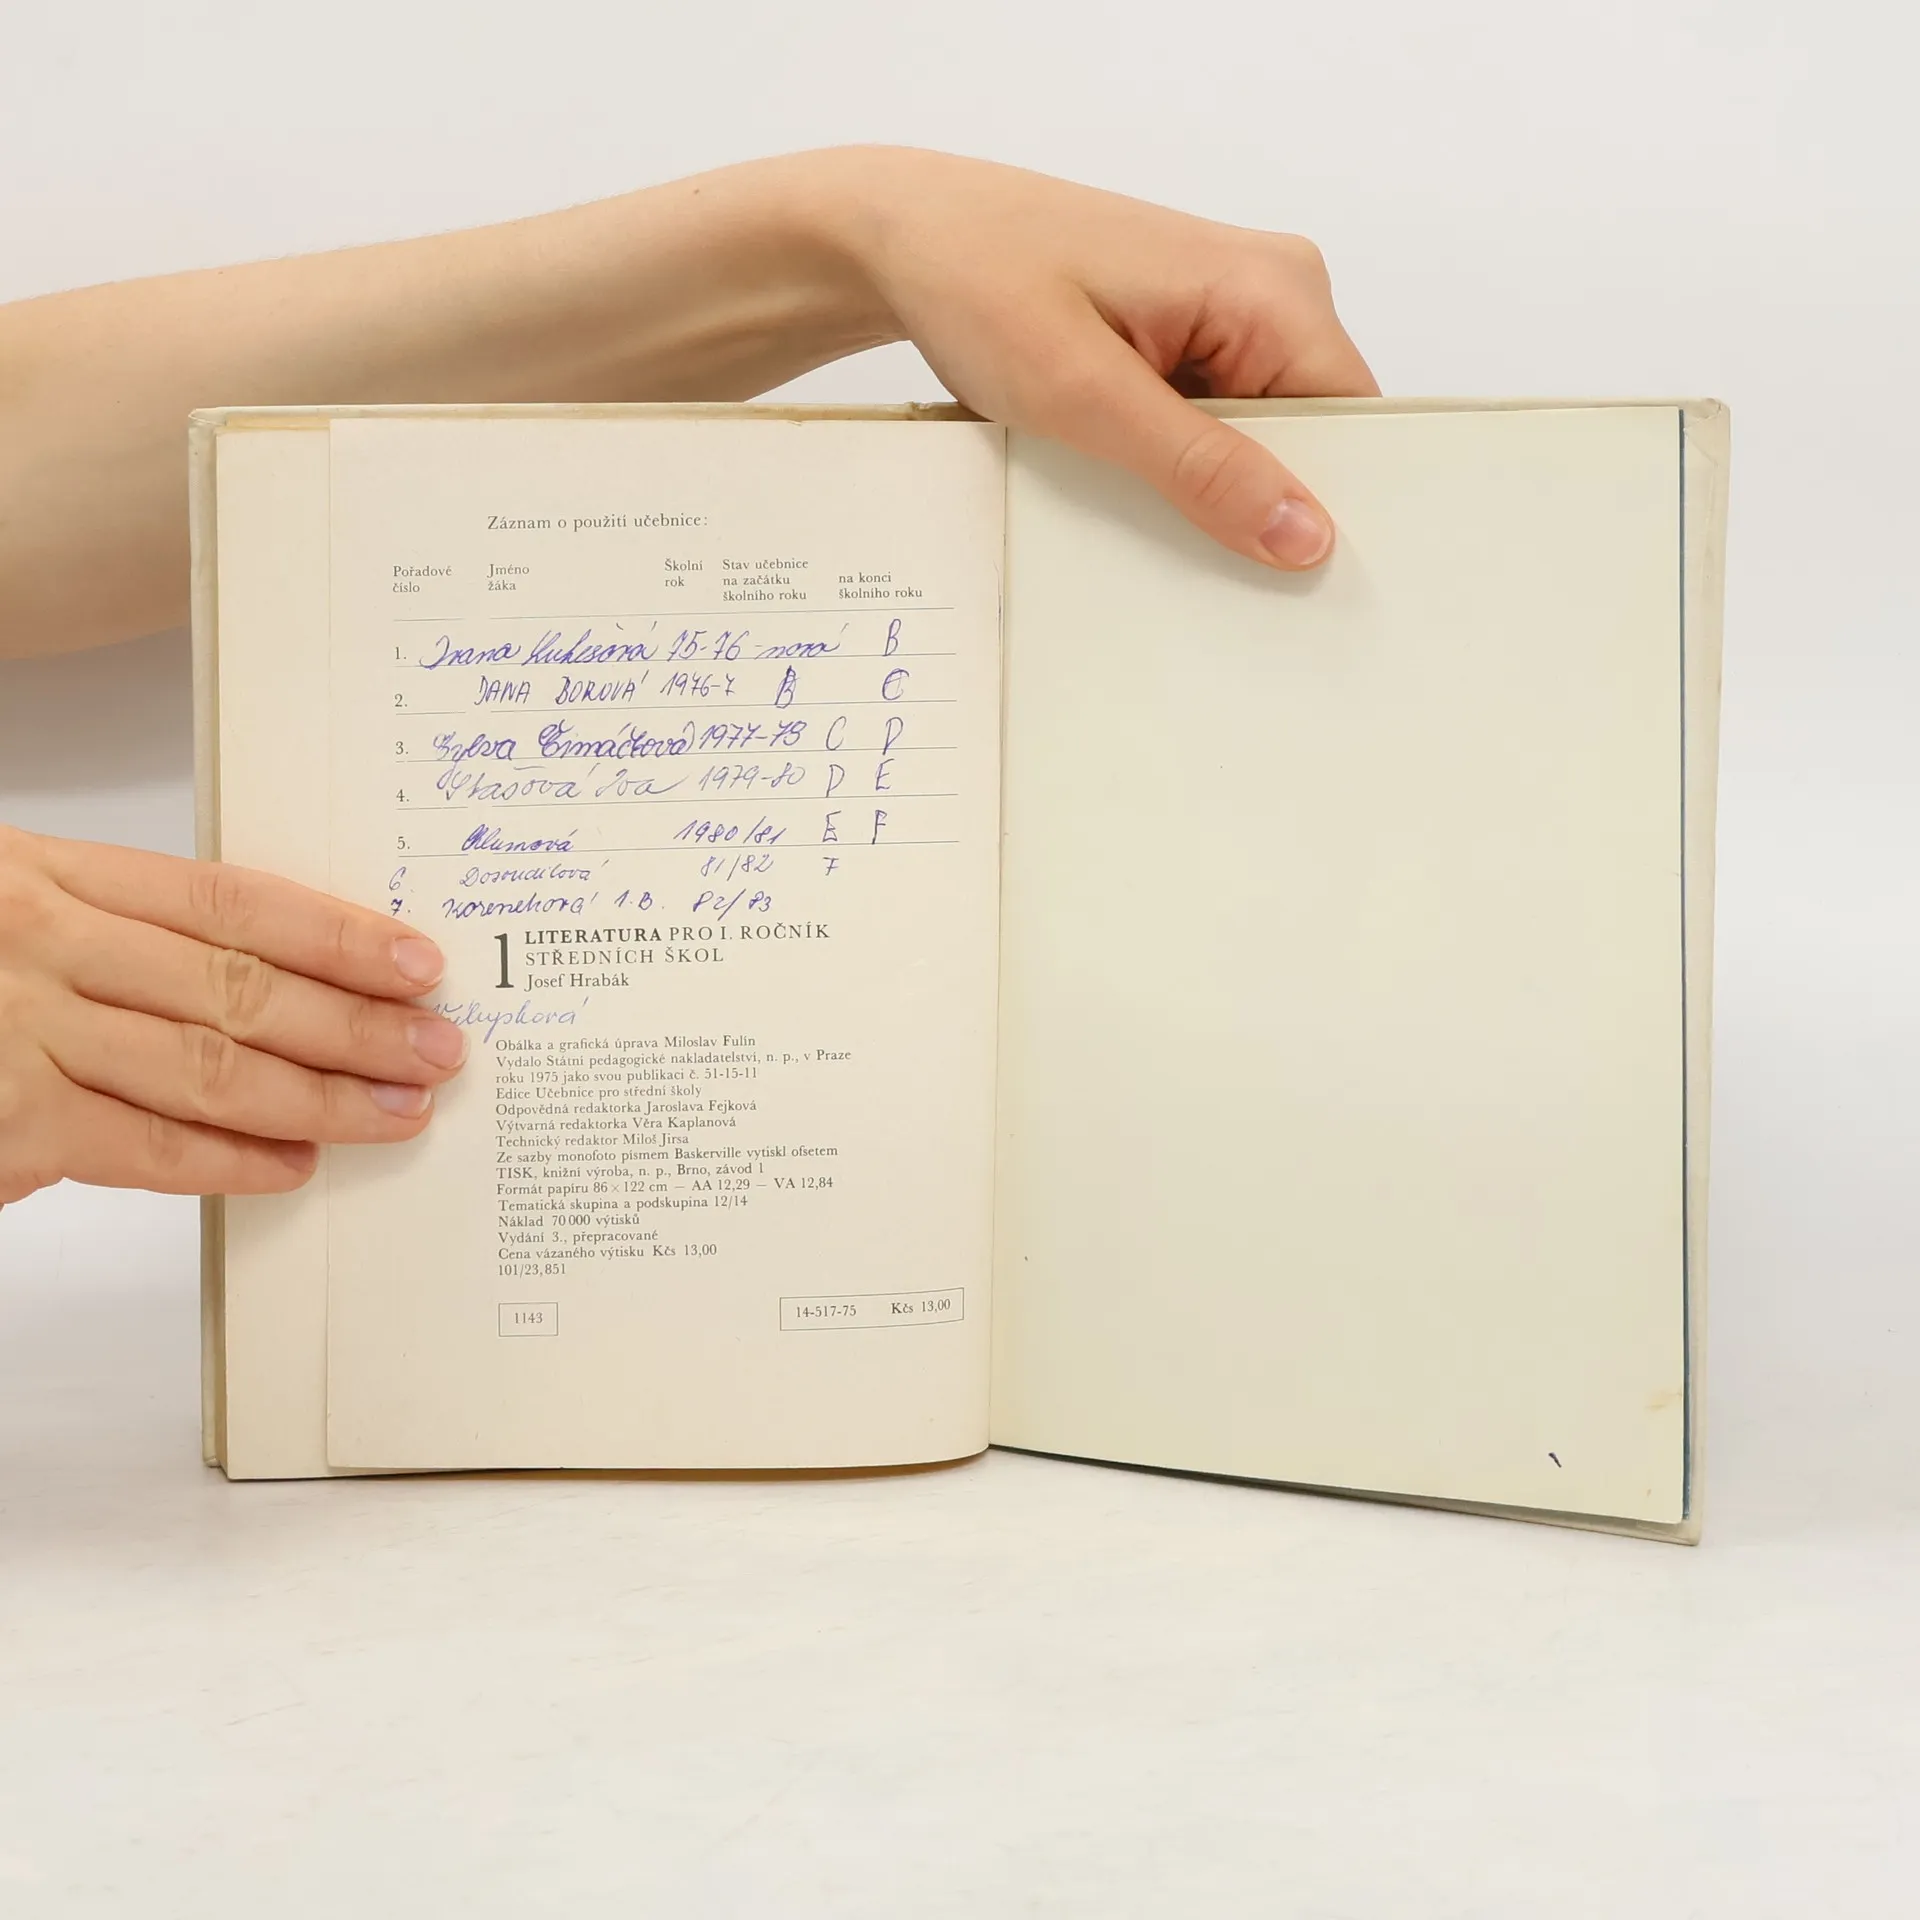 Záznam o použití učebnice:
Pořadové číslo
Jméno žáka
Školní rok
Stav učebnice na začátku školního roku
na konci školního roku
1. Ivana 75-76 nová B
2. DANA BOROVÁ 1976-7 B C
3. Sylva Čimáčková 1977-78 C D
4. Stašová Iva 1979-80 D E
5. Klumová 1980/81 E F
6. Dosoudilová 81/82 F
7. 1.B. 82/83
1 LITERATURA PRO I. ROČNÍK
STŘEDNÍCH ŠKOL
Josef Hrabák
Obálka a grafická úprava Miloslav Fulín
Vydalo Státní pedagogické nakladatelství, n. p., v Praze
roku 1975 jako svou publikaci č. 51-15-11
Edice Učebnice pro střední školy
Odpovědná redaktorka Jaroslava Fejková
Výtvarná redaktorka Věra Kaplanová
Technický redaktor Miloš Jirsa
Ze sazby monofoto písmem Baskerville vytiskl ofsetem
TISK, knižní výroba, n. p., Brno, závod 1
Formát papíru 86 × 122 cm — AA 12,29 — VA 12,84
Tematická skupina a podskupina 12/14
Náklad 70 000 výtisků
Vydání 3., přepracované
Cena vázaného výtisku Kčs 13,00
101/23,851
1143
14-517-75 Kčs 13,00